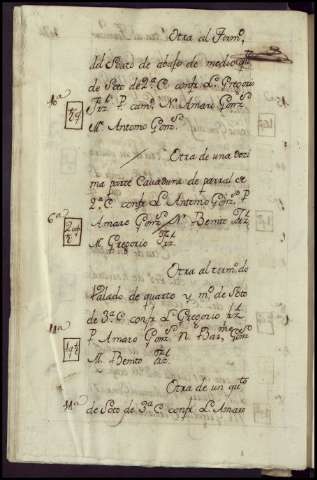 Otra al Term.º
del Souto de abajo de medio
de Soto de 2.ª C. confr. L. Gregorio
Frz P. cam.º N. Amaro Gonz.s
M. Antonio Gonz.s
Otra de una dezi
ma parte Cavadura de parral de
2.ª C. confr. L. Antonio Gonz.s P.
Amaro Gonz.s N. Benito Frz
M. Gregorio Frz
Otra al term.º do
Valado de quarto y m.º de Soto
de 3.ª C. confr. L. Gregorio frz
P. Amaro Gonz.s N. Gonz
M. Benito Frz
Otra de un
de Soto de 3.ª C. confr. L. Amaro